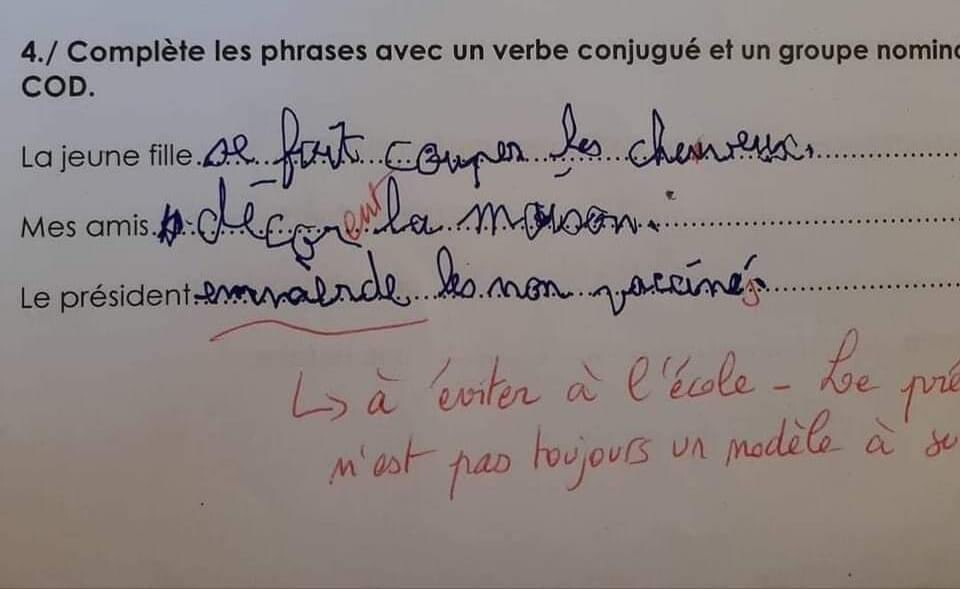 4./ Complète les phrases avec un verbe conjugué et un groupe nomina
COD.
La jeune fille se fait couper les cheveux.
Mes amis décorent la maison.
Le président emmèrde les non vaccinés
↳ à éviter à l'école - Le pré
n'est pas toujours un modèle à su